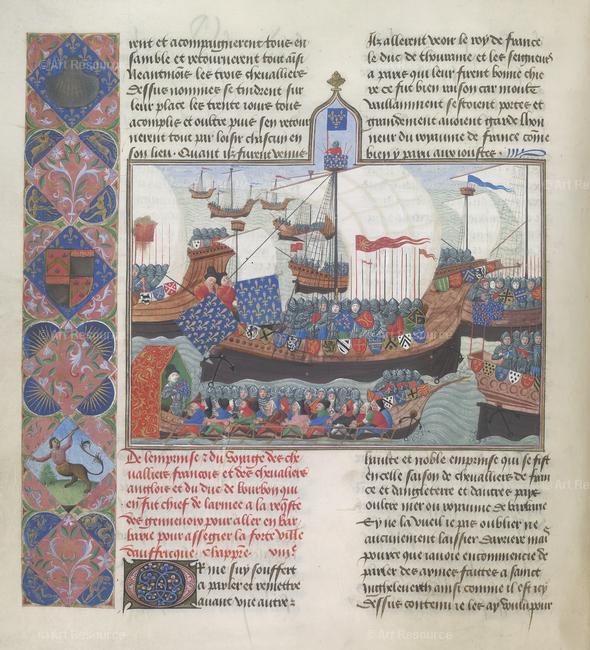 rent et acompaignerent tous en
semble et retournerent tout ainsi
Neantmoins les trois chevalliers
dessus nommes se tindrent sur
leur place les trente iours tous
acomplis et oultre puis sen retour
nerent tout par loisir chascun en
son lieu. Quant ilz furent venus
Ilz allerent veoir le roy de france
le duc de thouraine et les seigneurs
a paris qui leur firent bonne chie
re ce fut bien raison car moult
vaillamment sestoient portes et
grandement avoient garde lhon
neur du royaume de france come
bien y paru aux ioustes.
De lemprinse & du voyage des che
valliers francois et des chevaliers
anglois et du duc de bourbon qui
en fut chief de larmee a la reqste
des gennevois pour aller en bar
barie pour assegier la forte ville
dauffricque Chappre. viiie.
Or me suy souffert
a parler et remettre
avant une autre
haulte et noble emprinse qui se fist
en celle saison de chevaliers de fran
ce et dangleterre et dautres pays
oultre mer ou royaume de barbarie
Et ne la vueil ie pas oublier ne
aucunement laissier derriere mais
pource que iavoie encommencie de
parler des armes faittes a saint
inghelverth ainsi comme il est icy
dessus contenu ie les ay voulu pour
© Art Resource
© Art Resource
© Art Resource